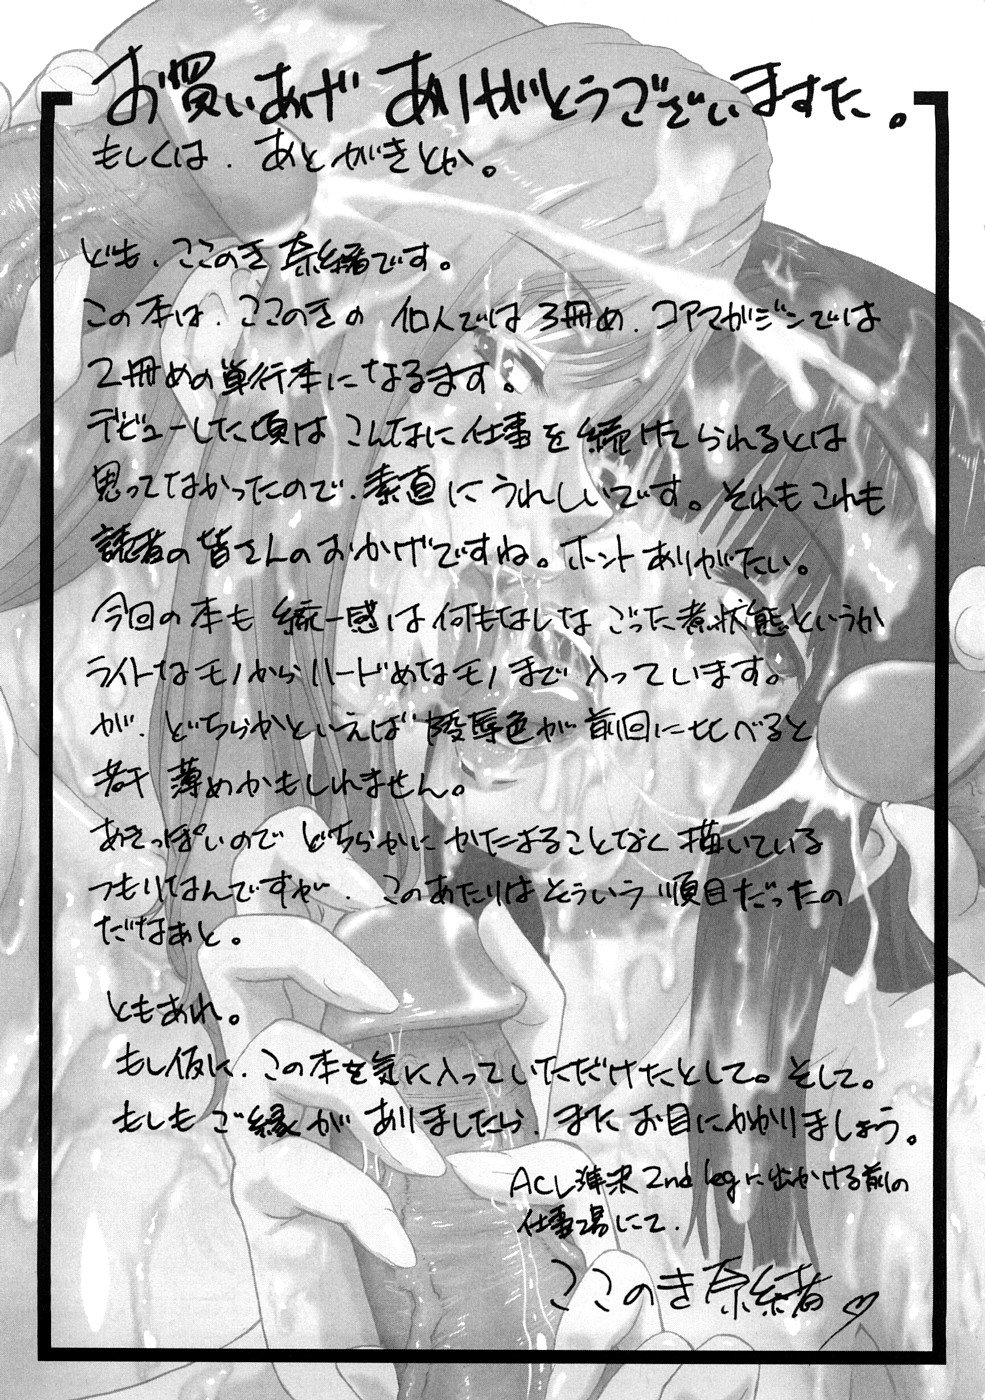 お買いあげ ありがとうございますた。
もしくは、あとがきとか。
ども、ここのき奈緒です。
この本は、ここのきの 個人では3冊め、コアマガジンでは
2冊めの単行本になるます。
デビューした頃は こんなに仕事を続けてられるとは
思ってなかったので、素直にうれしいです。それもこれも
読者の皆さんのおかげですね。ホントありがたい。
今回の本も 統一感は何もはしな ごった煮状態というか
ライトなモノからハードめなモノまで入っています。
が、どちらかといえば 陵辱色が前回に比べると
若干 薄めかもしれません。
あきっぽいので どちらかにかたまることなく描いている
つもりなんですが、このあたりはそういう順目だったの
だなぁと。
ともあれ。
もし仮に、この本を気に入っていただけたとして。そして。
もしもご縁がありましたら、またお目にかかりましょう。
ACL 準決 2nd legに出かける前の
仕事場にて、
ここのき奈緒